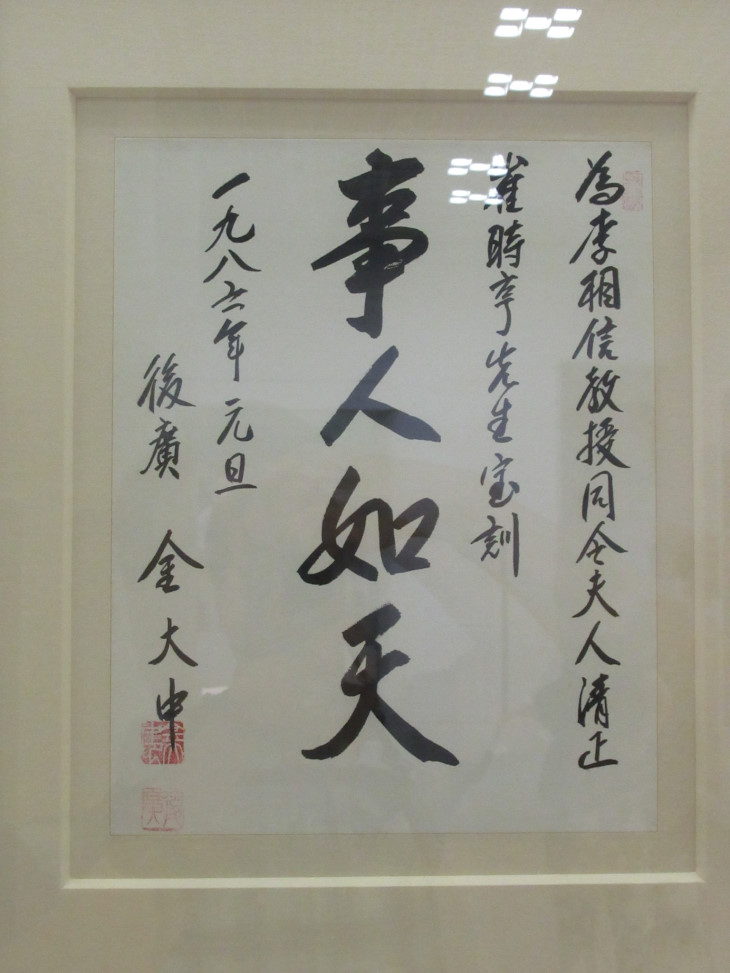 為李相信教授同令夫人清正
崔時亨先生宝刻
事人如天
一九八六年 元旦
後廣 金大中